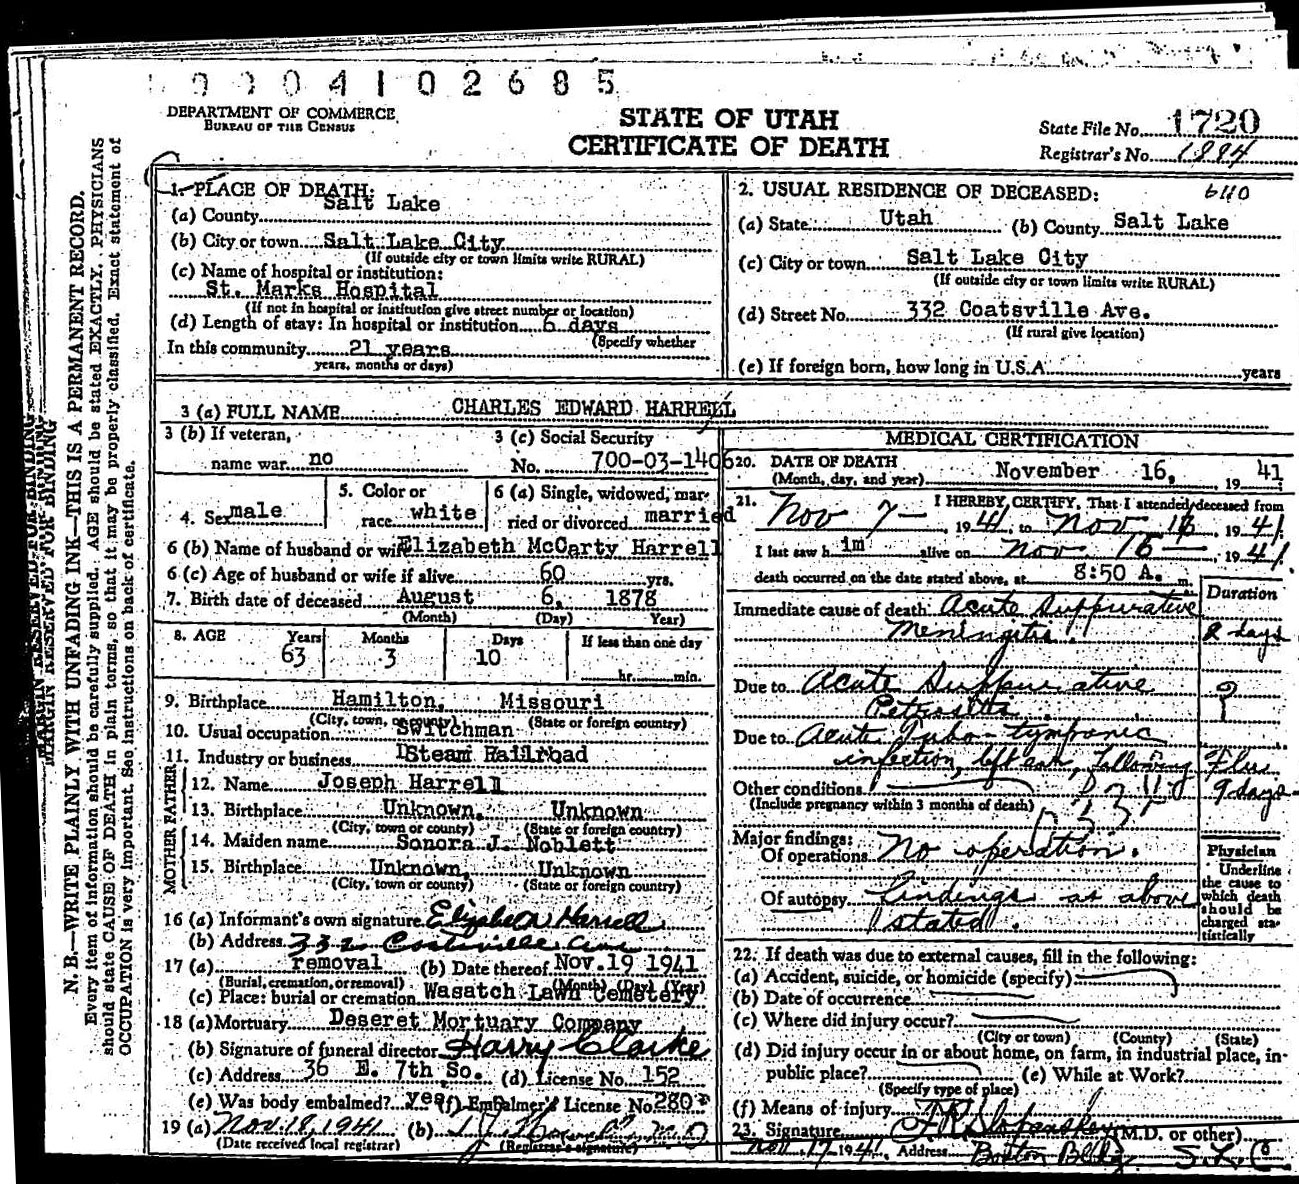 0 0 0 4 1 0 2 6 8 5
DEPARTMENT OF COMMERCE
BUREAU OF THE CENSUS
STATE OF UTAH
CERTIFICATE OF DEATH
State File No. 1720
Registrar's No. 1994
1. PLACE OF DEATH:
(a) County Salt Lake
(b) City or town Salt Lake City
(If outside city or town limits write RURAL)
(c) Name of hospital or institution:
St. Marks Hospital
(If not in hospital or institution give street number or location)
(d) Length of stay: In hospital or institution 6 days
(Specify whether
In this community 21 years
years, months or days)
2. USUAL RESIDENCE OF DECEASED:
(a) State Utah (b) County Salt Lake
(c) City or town Salt Lake City
(If outside city or town limits write RURAL)
(d) Street No. 332 Coatsville Ave.
(If rural give location)
(e) If foreign born, how long in U.S.A. years
3 (a) FULL NAME CHARLES EDWARD HARRELL
3 (b) If veteran,
name war no
3 (c) Social Security
No. 700-03-1406
4. Sex male
5. Color or
race white
6 (a) Single, widowed, mar-
ried or divorced married
6 (b) Name of husband or wife Elizabeth McCarty Harrell
6 (c) Age of husband or wife if alive 60 yrs.
7. Birth date of deceased August 6, 1878
(Month) (Day) Year)
8. AGE Years Months Days If less than one day
63 3 10 hr. min.
9. Birthplace Hamilton, Missouri
(City, town, or county) (State or foreign country)
10. Usual occupation Switchman
11. Industry or business Steam Railroad
FATHER
12. Name Joseph Harrell
13. Birthplace Unknown, Unknown
(City, town or county) (State or foreign country)
MOTHER
14. Maiden name Sonora J. Noblett
15. Birthplace Unknown, Unknown
(City, town or county) (State or foreign country)
16 (a) Informant's own signature Elizabeth Harrell
(b) Address 332 Coatsville Ave
17 (a) removal (b) Date thereof Nov. 19 1941
(Burial, cremation, or removal) (Month) (Day) (Year)
(c) Place: burial or cremation Wasatch Lawn Cemetery
18 (a) Mortuary Deseret Mortuary Company
(b) Signature of funeral director Harry Clarke
(c) Address 36 E. 7th So. (d) License No. 152
(e) Was body embalmed? yes (f) Embalmer's License No. 280
19 (a) Nov. 18, 1941 (b) M D
(Date received local registrar) (Registrar's signature)
MEDICAL CERTIFICATION
20. DATE OF DEATH November 16, 1941
(Month, day, and year)
21. I HEREBY CERTIFY, That I attended deceased from
Nov 7 — 1941 to Nov 16 1941
I last saw him alive on Nov. 15 — 1941
death occurred on the date stated above, at 8:50 A. m.
Duration
Immediate cause of death: Acute Suppurative
Meningitis 2 days
Due to Acute Suppurative ?
Petrositis
Due to Acute Tubo-tympanic
infection, left ear, following Flu
Other conditions 9 days
(Include pregnancy within 3 months of death)
Major findings:
Of operations No operation.
Of autopsy Findings as above
stated.
Physician
Underline
the cause to
which death
should be
charged sta-
tistically
22. If death was due to external causes, fill in the following:
(a) Accident, suicide, or homicide (specify)
(b) Date of occurrence
(c) Where did injury occur?
(City or town) (County) (State)
(d) Did injury occur in or about home, on farm, in industrial place, in-
public place? (e) While at Work?
(Specify type of place)
(f) Means of injury
23. Signature (M.D. or other)
Nov. 17 1941, Address Boston Bldg S. L. C
MARGIN RESERVED FOR BINDING
N. B.—WRITE PLAINLY WITH UNFADING INK—THIS IS A PERMANENT RECORD.
Every item of information should be carefully supplied. AGE should be stated EXACTLY. PHYSICIANS
should state CAUSE OF DEATH in plain terms, so that it may be properly classified. Exact statement of
OCCUPATION is very important. See instructions on back of certificate.